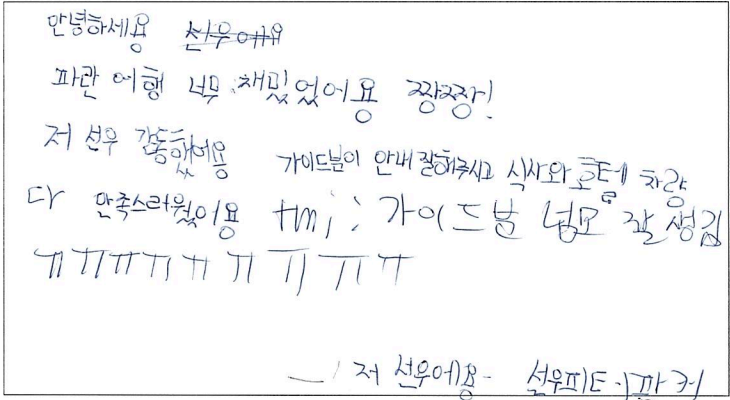 안녕하세용 선우에요
파란 여행 너무 재밌었어용 짱짱!
저 선우 감동했어용 가이드분이 안내 잘해주시고 식사와 호텔 차량
다 만족스러웠어용 tmi : 가이드분 넘모 잘생김
ㅠㅠㅠㅠㅠㅠㅠㅠㅠ
저 선우에용- 선우피터파커